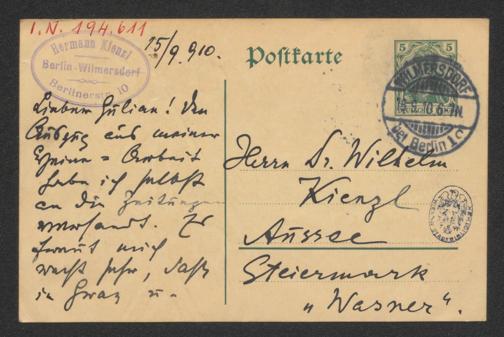 I.N. 194.611
Hermann Kienzl
Berlin-Wilmersdorf
Berlinerstr. 10
15/9.910.
Postkarte
5 5
WILMERSDORF
bei Berlin 1
Lieber Julian! Den
Auszug aus meiner
Heine = Arbeit
habe ich selbst
an die Zeitungen
versandt. Es
freut mich
recht sehr, daß
in Graz u.
Herrn Dr. Wilhelm
Kienzl
Aussee
Steiermark
"Wasner".